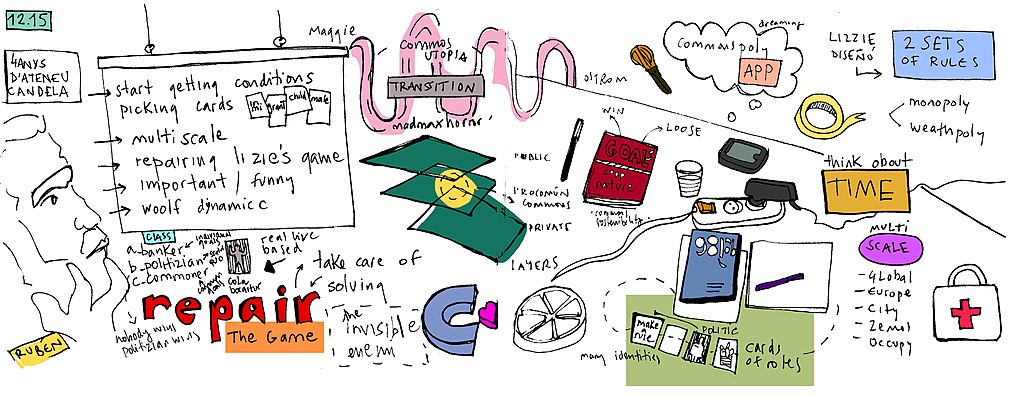 12.15
4ANYS
D'ATENEU
CANDELA
start getting conditions
picking cards
grant
child
male
multiscale
repairing lizie's game
important / funny
woolf dynamicc
Maggie
commos
UTOPIA
TRANSITION
madmaxhorror
OSTROM
dreaming
Commonspoly
APP
LIZZIE
DISEÑÓ
2 SETS
OF RULES
monopoly
weathpoly
PUBLIC
PROCOMÚN
COMMONS
PRIVATE
LAYERS
WIN
LOOSE
GOAL
coop
nature
think about
TIME
MULTI
SCALE
- Global
- Europe
- City
- Zemos
- Occupy
CLASS
a. banker
b. politizian
c. commoner
individual
goals
real live
based
take care of
solving
repair
The Game
nobody wins
politizian wins
RUBEN
the
invisible
enem
many identities
make
a
rule
POLITIC
cards
of roles